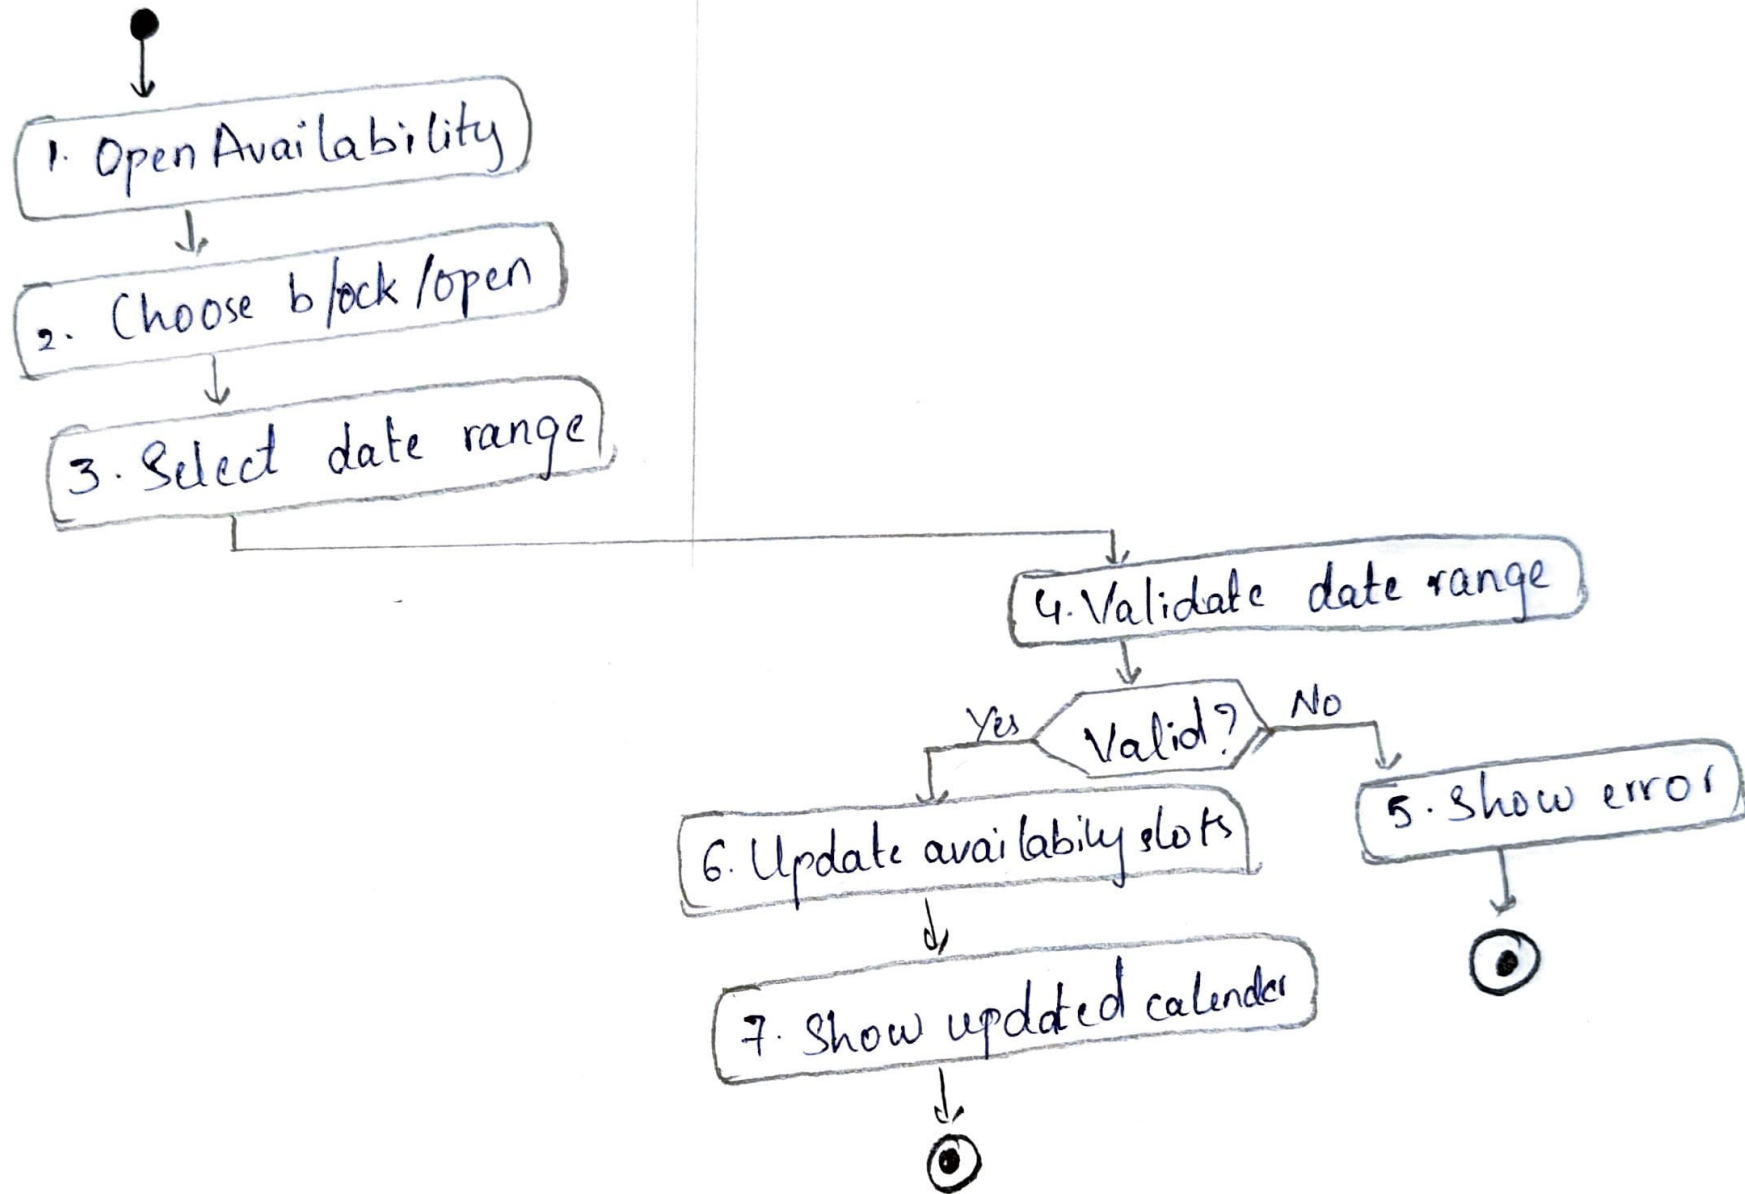 1. Open Availability
2. Choose block/open
3. Select date range
4. Validate date range
Valid?
Yes
No
5. Show error
6. Update availabiliy slots
7. Show updated calender